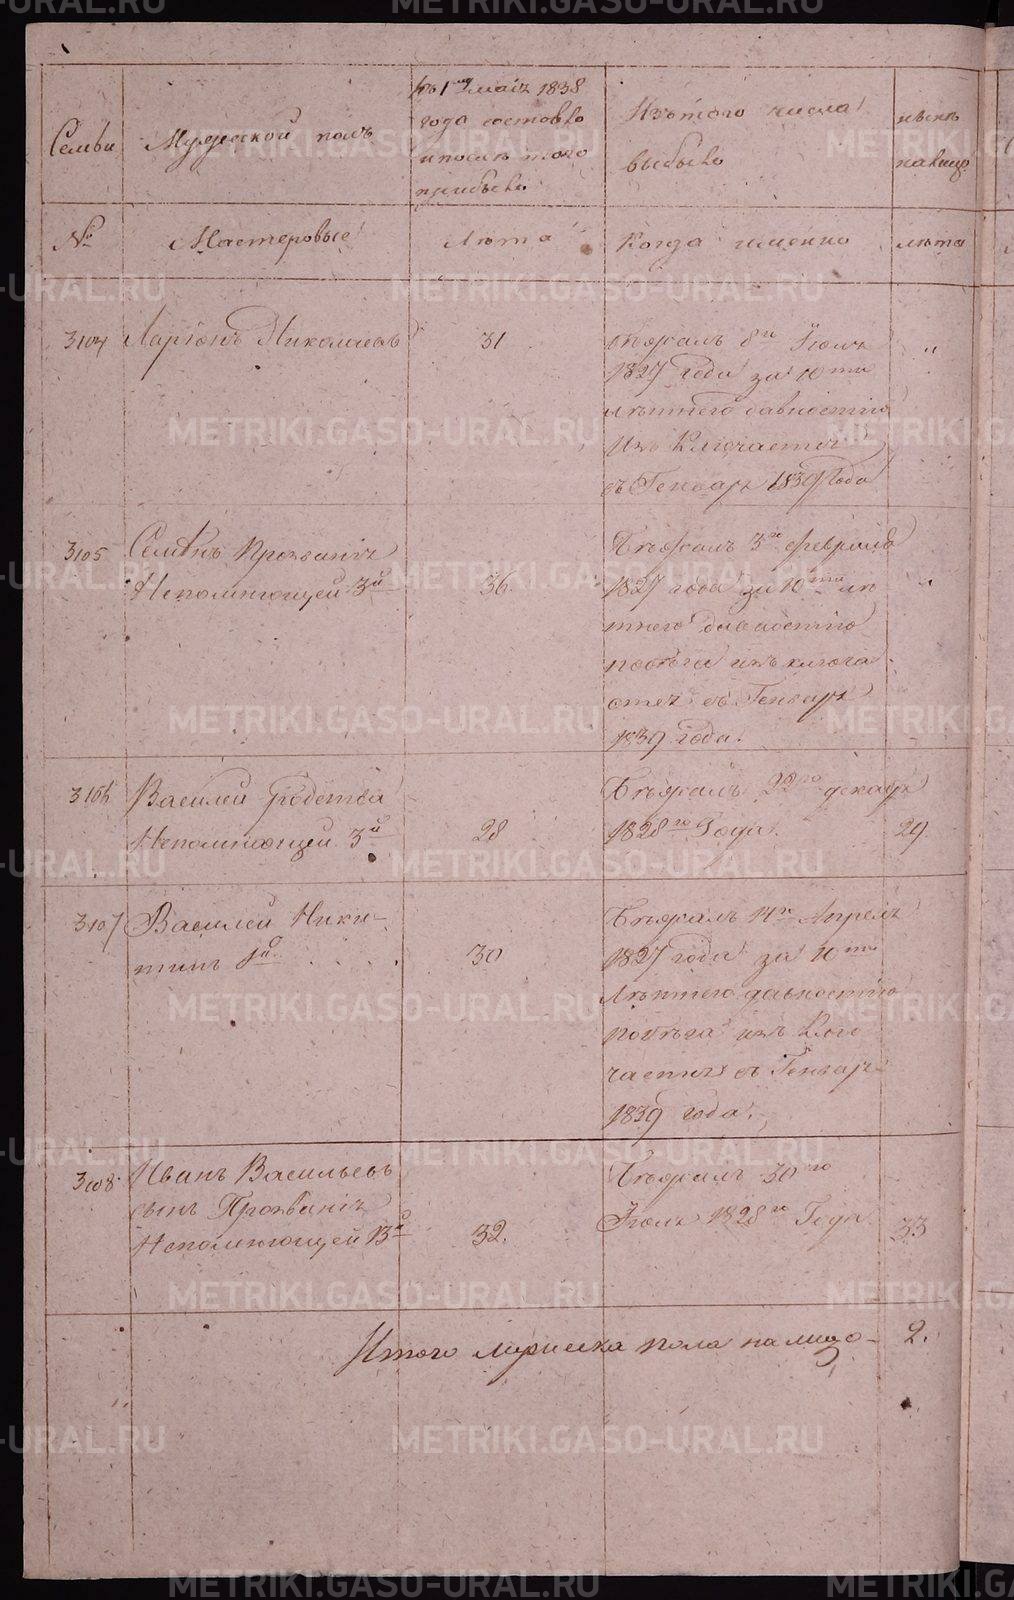 METRIKI.GASO-URAL.RU
Семьи
Мужеской полъ
къ 1му маiя 1838
года состояло
и послѣ того
прибыло
Изътого числа
выбыло
нынѣ
налицо
№
Мастеровые
Лѣта
Когда именно
лѣта
3104 Ларiонъ Николаевъ 31
Бѣжалъ 8го Iюля
1827 года за 10ти
лѣтнего давностiю
изъ Ключается
въ Генварѣ 1839 Года
"
3105 Семенъ Прозванiя
Непомнющей 3й 36
Бѣжалъ 3го февраля
1827 года за 10ти лѣ
тнего давностiю
побѣга изъ ключа
ется въ Генварѣ
1839 года.
"
3106 Василей родства
Непомнющей 3й 28
Бѣжалъ 22го декабр
1828го Года. 29
3107 Василей Ники-
тинъ 1й 30
Бѣжалъ 14го Апреля
1827 года за 10ти
лѣтнего давностiю
побѣга изъ Клю
чается въ Генварѣ
1839 года.
3108 Иванъ Васильевъ
сынъ Прозванiя
Непомнющей 13й 32.
Бѣжалъ 30го
Iюля 1828го Года 33
Итого мужеска пола налицо - 2.